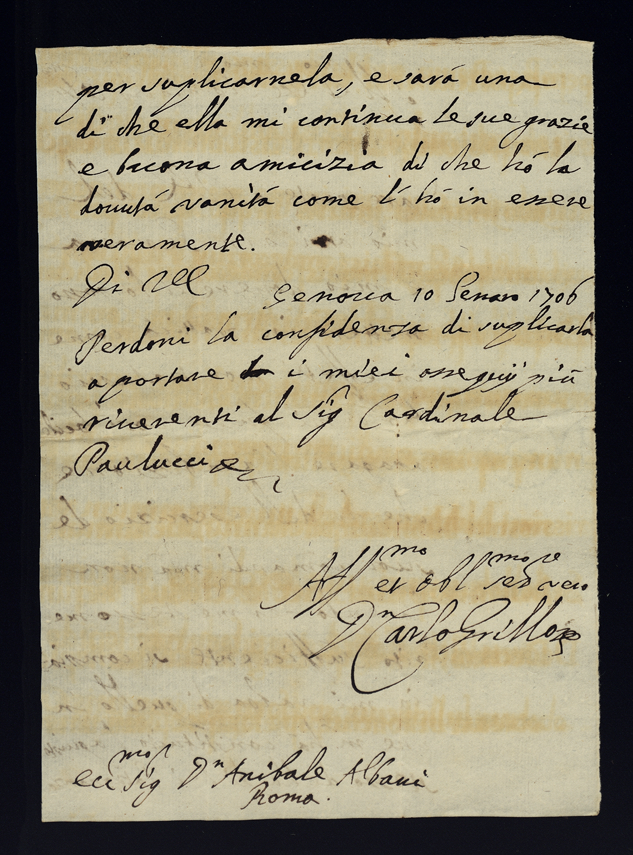 per suplicarnela, e sará una
di che ella mi continua le sue grazie
e buona amicizia di che hó la
douutá vanitá come l'hó in essere
veramente.
Di VE Genoua 10 Genaro 1706
Perdoni la confidenza di suplicarla
a portare i miei ossequij piú
riuerenti al Sig.r Cardinale
Paulucci
Aff.mo et obl.mo ser.re vero
D.n Carlo Grillo
ecc.mo Sig.r D.n Anibale Albani
Roma.